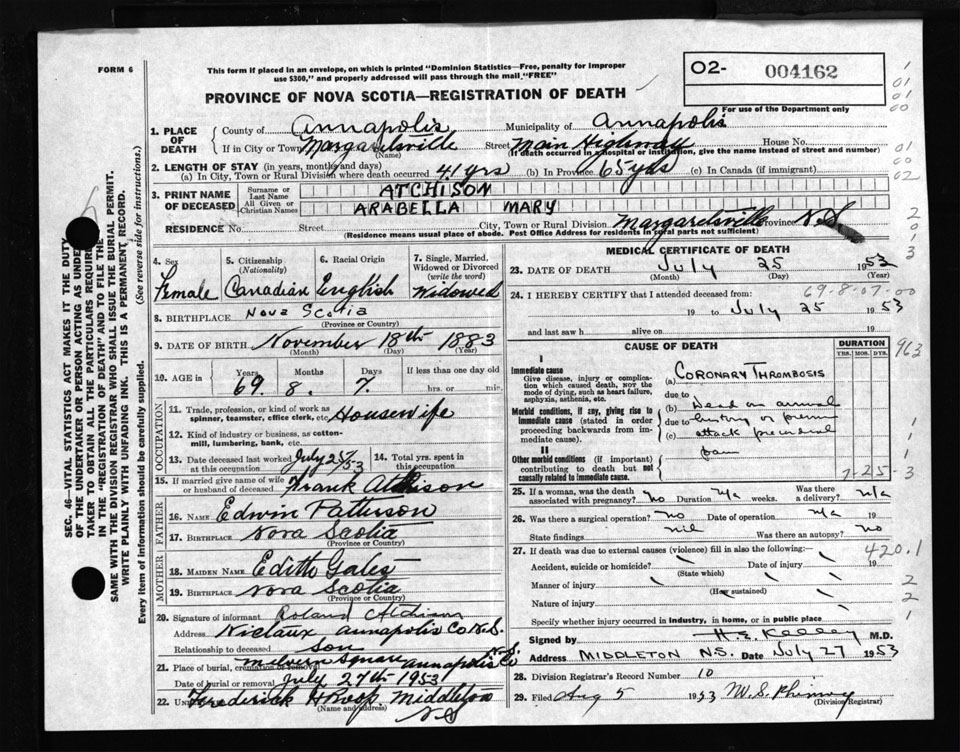 FORM 6
This form if placed in an envelope, on which is printed "Dominion Statistics—Free, penalty for improper
use $300," and properly addressed will pass through the mail "FREE"
PROVINCE OF NOVA SCOTIA—REGISTRATION OF DEATH
O2- 004162
For use of the Department only
1. PLACE OF DEATH
County of Annapolis Municipality of Annapolis
If in City or Town Margaretsville (Name) Street Main Highway House No.
(If death occurred in a hospital or institution, give the name instead of street and number)
2. LENGTH OF STAY (in years, months and days)
(a) In City, Town or Rural Division where death occurred 41 yrs (b) In Province 65 yds (c) In Canada (if immigrant)
3. PRINT NAME OF DECEASED
Surname or Last Name ATCHISON
All Given or Christian Names ARABELLA MARY
RESIDENCE No. Street City, Town or Rural Division Margaretsville N.S.
(Residence means usual place of abode. Post Office Address for residents in rural parts not sufficient)
4. Sex Female
5. Citizenship (Nationality) Canadian
6. Racial Origin English
7. Single, Married, Widowed or Divorced (write the word) Widowed
8. BIRTHPLACE Nova Scotia
(Province or Country)
9. DATE OF BIRTH November 18th 1883
(Month) (Day) (Year)
10. AGE in Years 69. Months 8. Days 7. If less than one day old hrs. or min.
OCCUPATION
11. Trade, profession, or kind of work as spinner, teamster, office clerk, etc. Housewife
12. Kind of industry or business, as cotton-mill, lumbering, bank, etc.
13. Date deceased last worked at this occupation July 25/53
14. Total yrs. spent in this occupation
15. If married give name of wife or husband of deceased Frank Atchison
FATHER
16. NAME Edwin Patterson
17. BIRTHPLACE Nova Scotia
(Province or Country)
MOTHER
18. MAIDEN NAME Edith Gates
19. BIRTHPLACE Nova Scotia
(Province or Country)
20. Signature of informant Roland Atchison
Address Nictaux Annapolis Co N.S.
Relationship to deceased Son
21. Place of burial, cremation or removal Melvern Square Annapolis Co N.S.
Date of burial or removal July 27th 1953
22. Undertaker Frederick Roop Middleton N.S
(Name and address)
MEDICAL CERTIFICATE OF DEATH
23. DATE OF DEATH July 25 1953
(Month) (Day) (Year)
69-8-07-00
24. I HEREBY CERTIFY that I attended deceased from:
19 to July 25 1953
and last saw h alive on 19
CAUSE OF DEATH
DURATION
YRS. MOS. DYS.
963
I
Immediate cause
Give disease, injury or complication which caused death, NOT the mode of dying, such as heart failure, asphyxia, asthenia, etc.
(a) CORONARY THROMBOSIS
due to
Morbid conditions, if any, giving rise to immediate cause (stated in order proceeding backwards from immediate cause).
(b) Dead on arrival
due to history of
(c) attack precordial
pain
II
Other morbid conditions (if important) contributing to death but not causally related to immediate cause.
7-25-3
25. If a woman, was the death associated with pregnancy? No Duration n/a weeks. Was there a delivery? n/a
26. Was there a surgical operation? no Date of operation n/a 19
State findings nil Was there an autopsy? No
27. If death was due to external causes (violence) fill in also the following:—
420.1
Accident, suicide or homicide? Date of injury 19
(State which)
Manner of injury
(How sustained)
Nature of injury
Specify whether injury occurred in industry, in home, or in public place
Signed by H. E. Kelley M.D.
Address MIDDLETON N.S. Date July 27 1953
28. Division Registrar's Record Number 10
29. Filed Aug 5 1953 W. S. Phinney
(Division Registrar)
SEC. 46—VITAL STATISTICS ACT MAKES IT THE DUTY
OF THE UNDERTAKER OR PERSON ACTING AS UNDERTAKER TO OBTAIN ALL THE PARTICULARS REQUIRED
IN THE "REGISTRATION OF DEATH" AND TO FILE THE
SAME WITH THE DIVISION REGISTRAR WHO SHALL ISSUE THE BURIAL PERMIT.
WRITE PLAINLY WITH UNFADING INK. THIS IS A PERMANENT RECORD.
Every item of information should be carefully supplied. (See reverse side for instructions.)